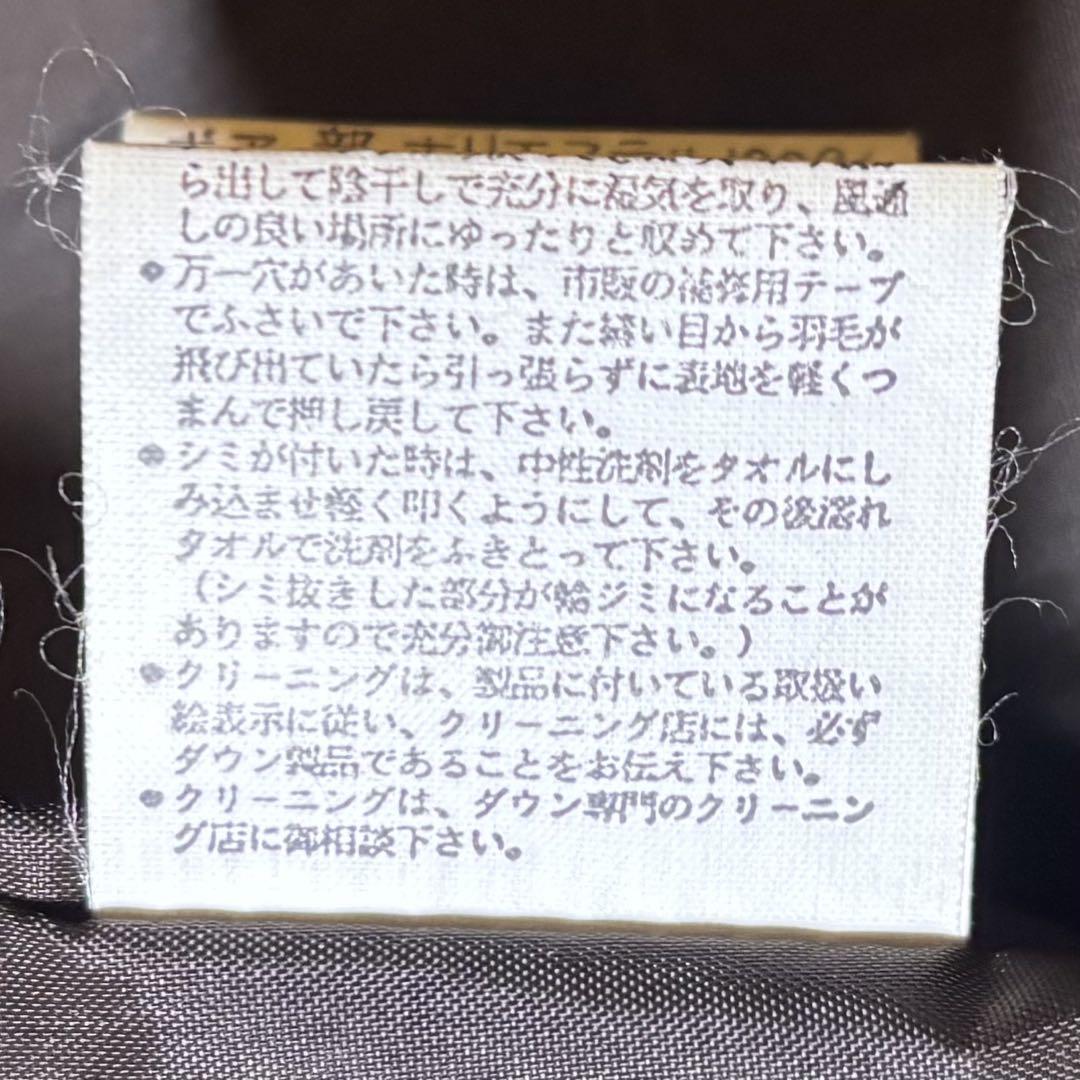 ボア 部 ポリエステル 100%
ら出して陰干しで充分に湿気を取り、風通
しの良い場所にゆったりと収めて下さい。
●万一穴があいた時は、市販の補修用テープ
でふさいで下さい。また縫い目から羽毛が
飛び出ていたら引っ張らずに表地を軽くつ
まんで押し戻して下さい。
●シミが付いた時は、中性洗剤をタオルにし
み込ませ軽く叩くようにして、その後濡れ
タオルで洗剤をふきとって下さい。
(シミ抜きした部分が輪ジミになることが
ありますので充分御注意下さい。)
●クリーニングは、製品に付いている取扱い
絵表示に従い、クリーニング店には、必ず
ダウン製品であることをお伝え下さい。
●クリーニングは、ダウン専門のクリーニン
グ店に御相談下さい。